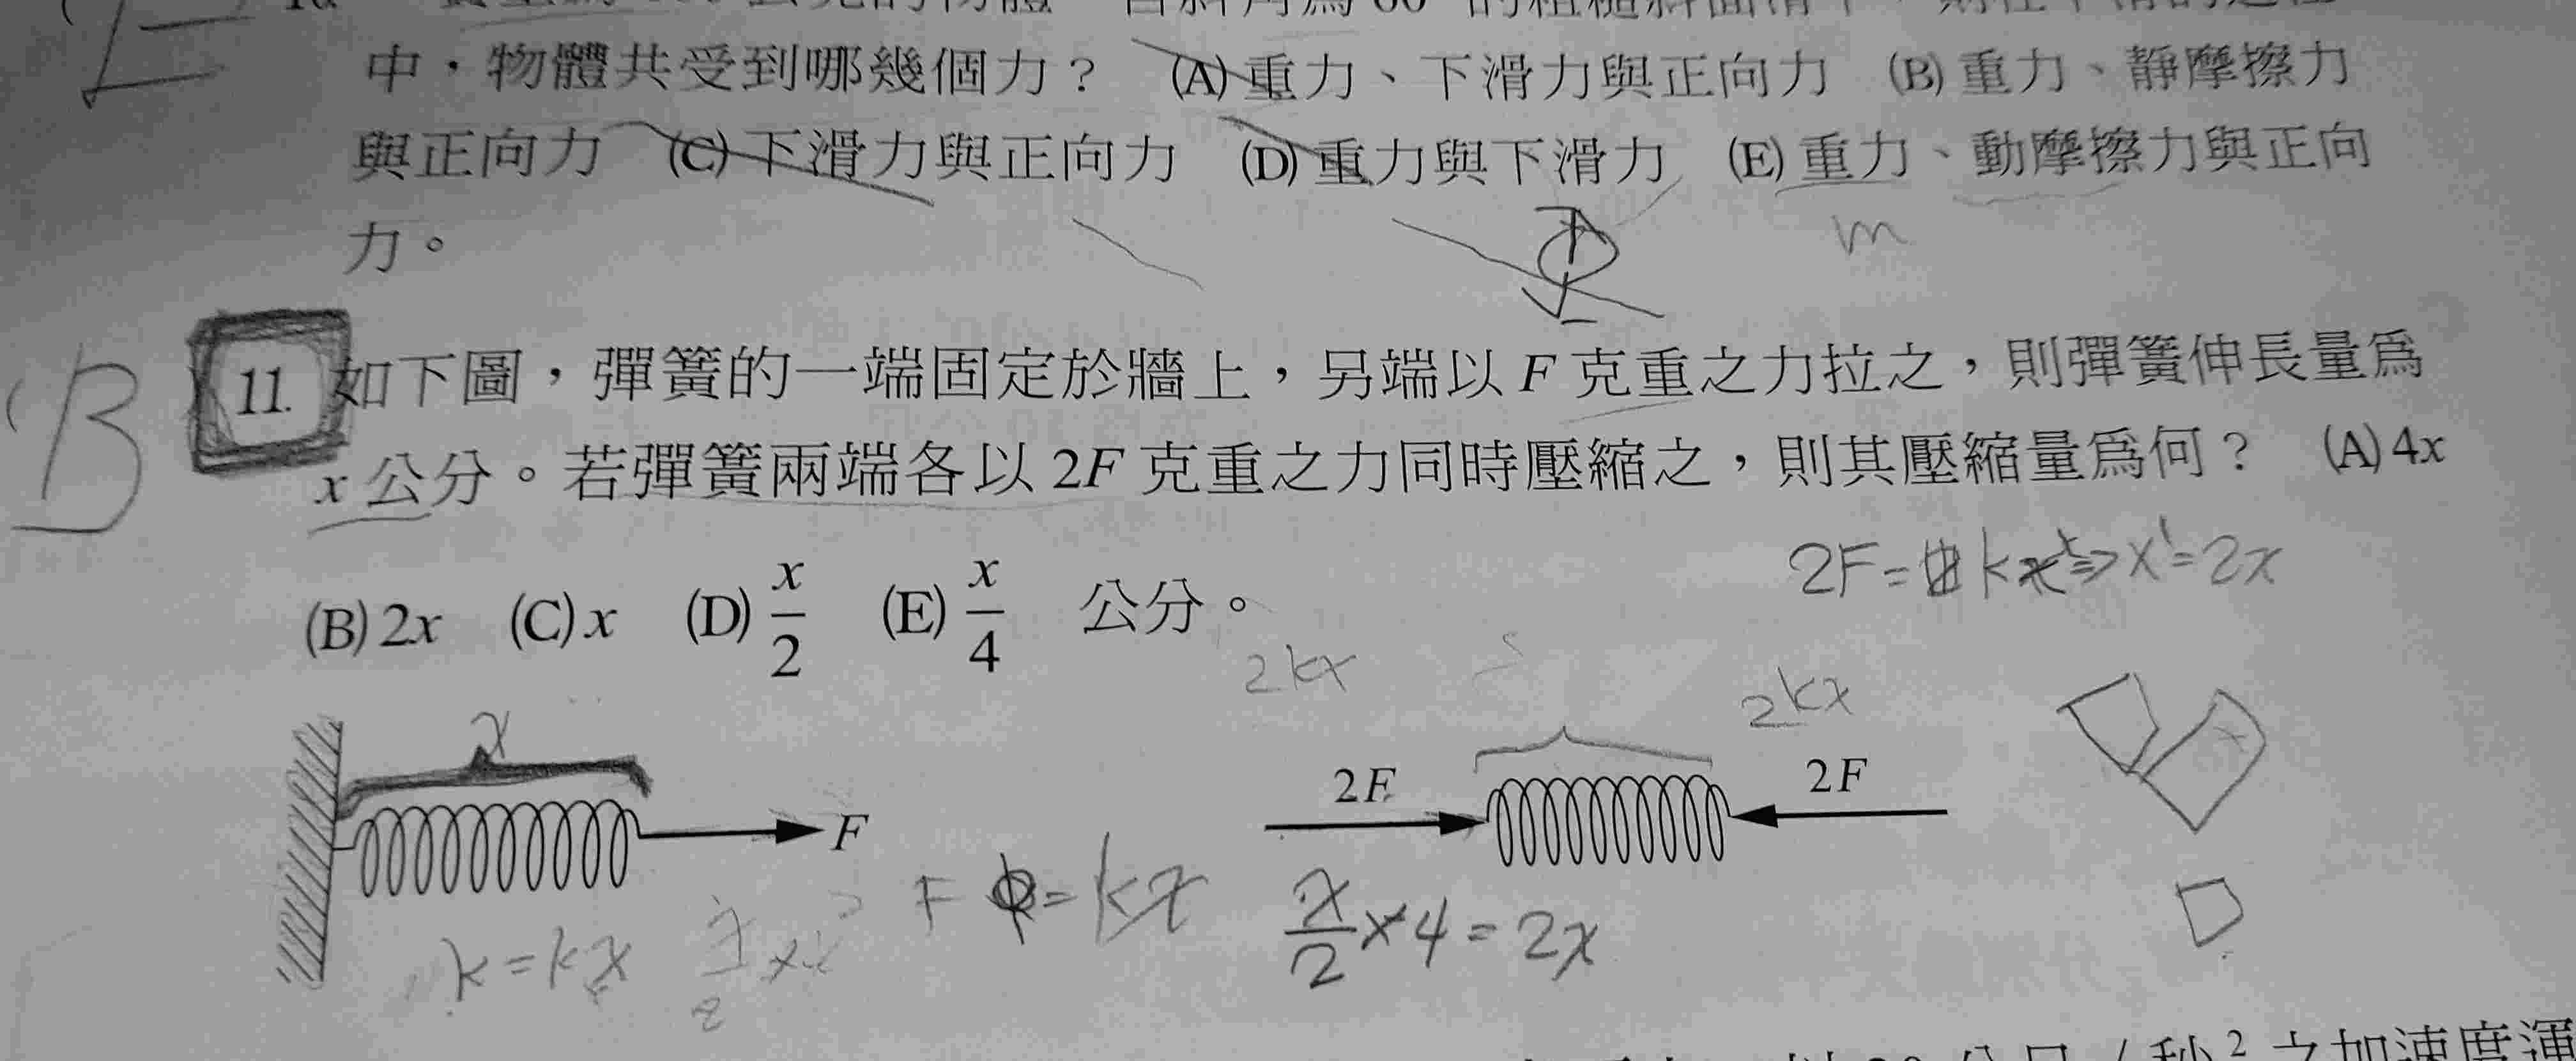 中，物體共受到哪幾個力？ (A)重力、下滑力與正向力 (B)重力、靜摩擦力
與正向力 (C)下滑力與正向力 (D)重力與下滑力 (E)重力、動摩擦力與正向
力。
m
B 11. 如下圖，彈簧的一端固定於牆上，另端以 F 克重之力拉之，則彈簧伸長量為
x 公分。若彈簧兩端各以 2F 克重之力同時壓縮之，則其壓縮量為何？ (A) 4x
2F= kx'⇒x'=2x
(B) 2x (C) x (D) x/2 (E) x/4 公分。
2kx 2kx
x
2F 2F
F
F = kx x/2 × 4 = 2x
k = kx